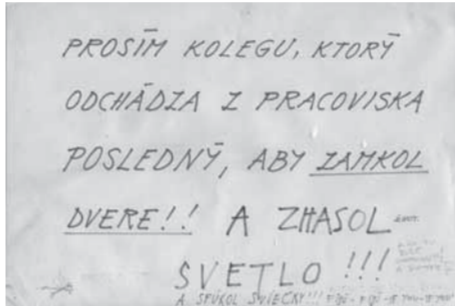 PROSÍM KOLEGU, KTORÝ
ODCHÁDZA Z PRACOVISKA
POSLEDNÝ, ABY ZAMKOL
DVERE!! A ZHASOL
SVETLO!!!
A SFÚKOL SVIEČKY!!!